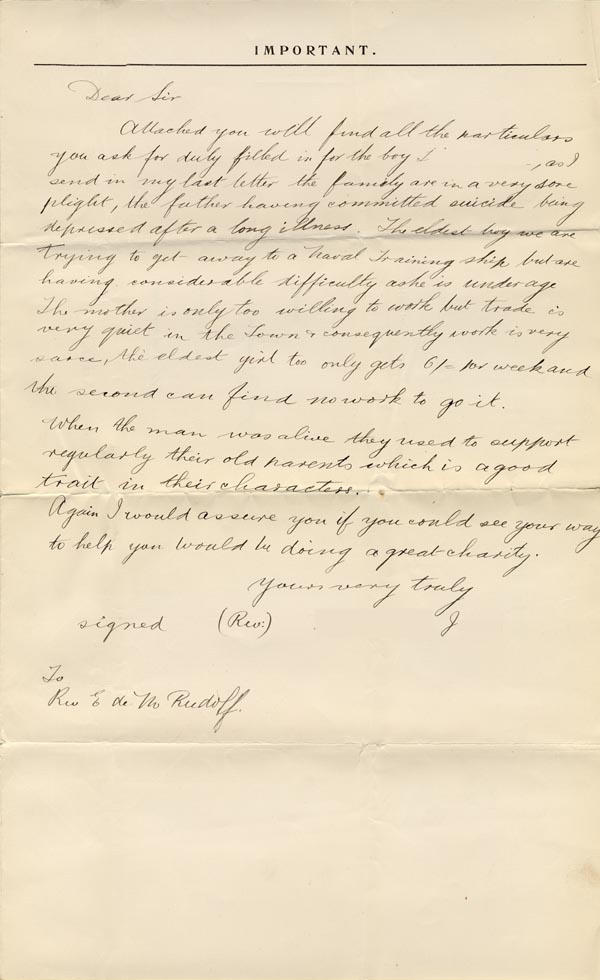 IMPORTANT.
Dear Sir
Attached you will find all the particulars
you ask for duly filled in for the boy I , as I
send in my last letter the family are in a very sore
plight, the father having committed suicide being
depressed after a long illness. The eldest boy we are
trying to get away to a Naval Training ship but are
having considerable difficulty as he is under age
The mother is only too willing to work but trade is
very quiet in the Town & consequently work is very
sarce, the eldest girl too only gets 6/= per week and
the second can find no work to go it.
When the man was alive they used to support
regularly their old parents which is a good
trait in their characters.
Again I would assure you if you could see your way
to help you would be doing a great charity.
Yours very truly
signed (Rev:) J
To
Rev E de M Rudolf.